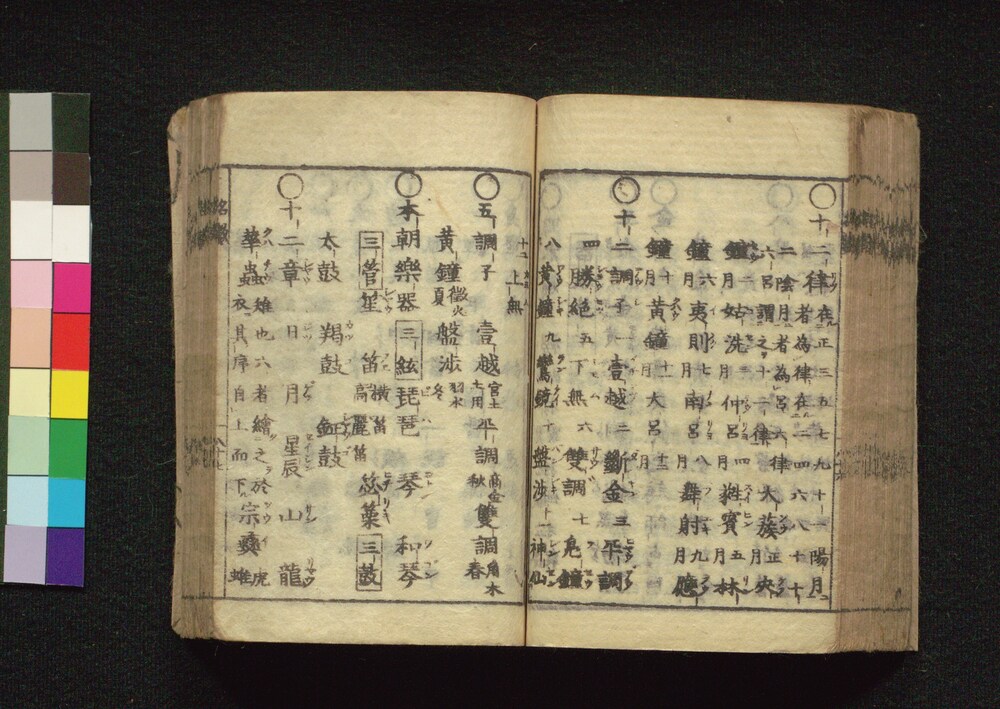 ○十二律 在正三五七九十一陽月
者為律在二四六八十十
二陰月者為呂六律
六呂謂之十二律 大簇正月 夾
鐘二月 姑洗三月 仲呂四月 蕤賓五月 林
鐘六月 夷則七月 南呂八月 無射九月 應
鐘十月 黄鐘十一月 大呂十二月
○十二調子 一壹越 二斷金 三平調
四勝絶 五下無 六雙調 七鳧鐘
八黄鐘 九鸞鏡 十盤渉 十一神仙
十二上無
○五調子 壹越宮土土用 平調商金秋 雙調角木春
黄鐘徴火夏 盤渉羽水冬
○本朝樂器 三絃 琵琶 琴 和琴
三管 笙 笛横笛高麗笛 篳篥 三鼓
太鼓 羯鼓 鉦鼓
○十二章 日 月 星辰 山 龍
華蟲雉也六者繪之於衣其序自上而下 宗彝虎蜼